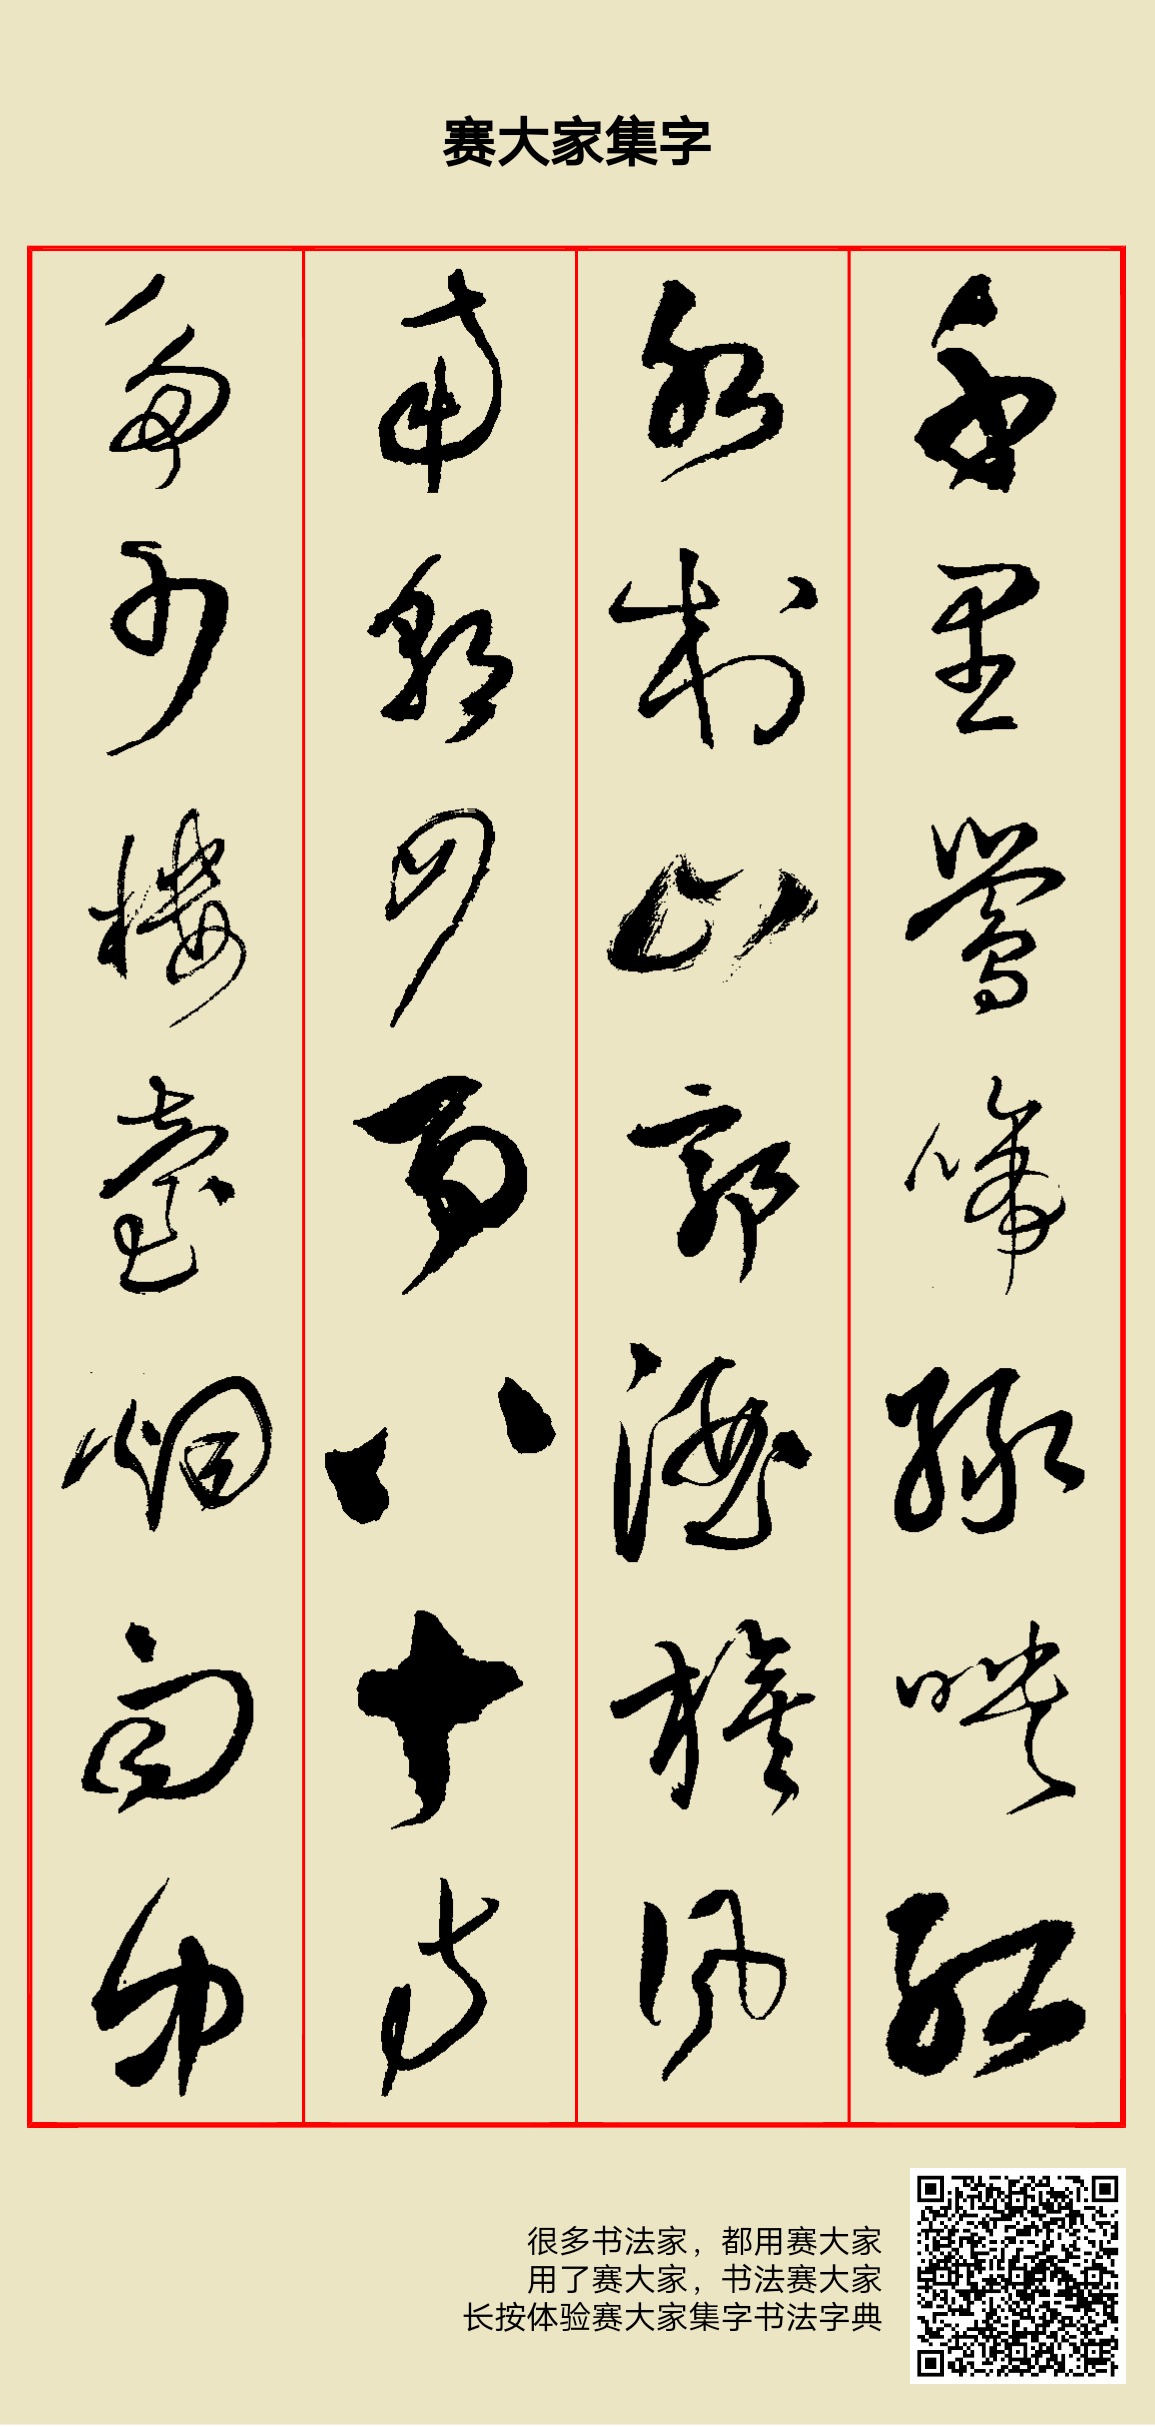 赛大家集字
千里鶯啼綠映紅
水村山郭酒旗風
南朝四百八十寺
多少樓臺烟雨中
很多书法家，都用赛大家
用了赛大家，书法赛大家
长按体验赛大家集字书法字典